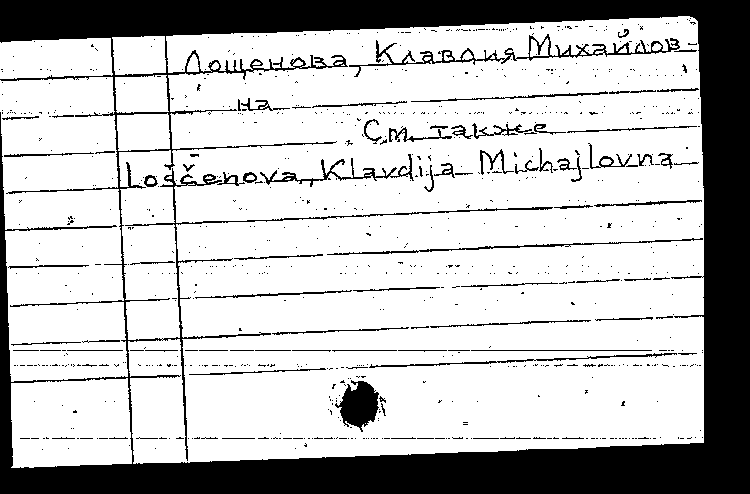 Лощенова, Клавдия Михайлов-
на
См. также
Loščenova, Klavdija Michajlovna